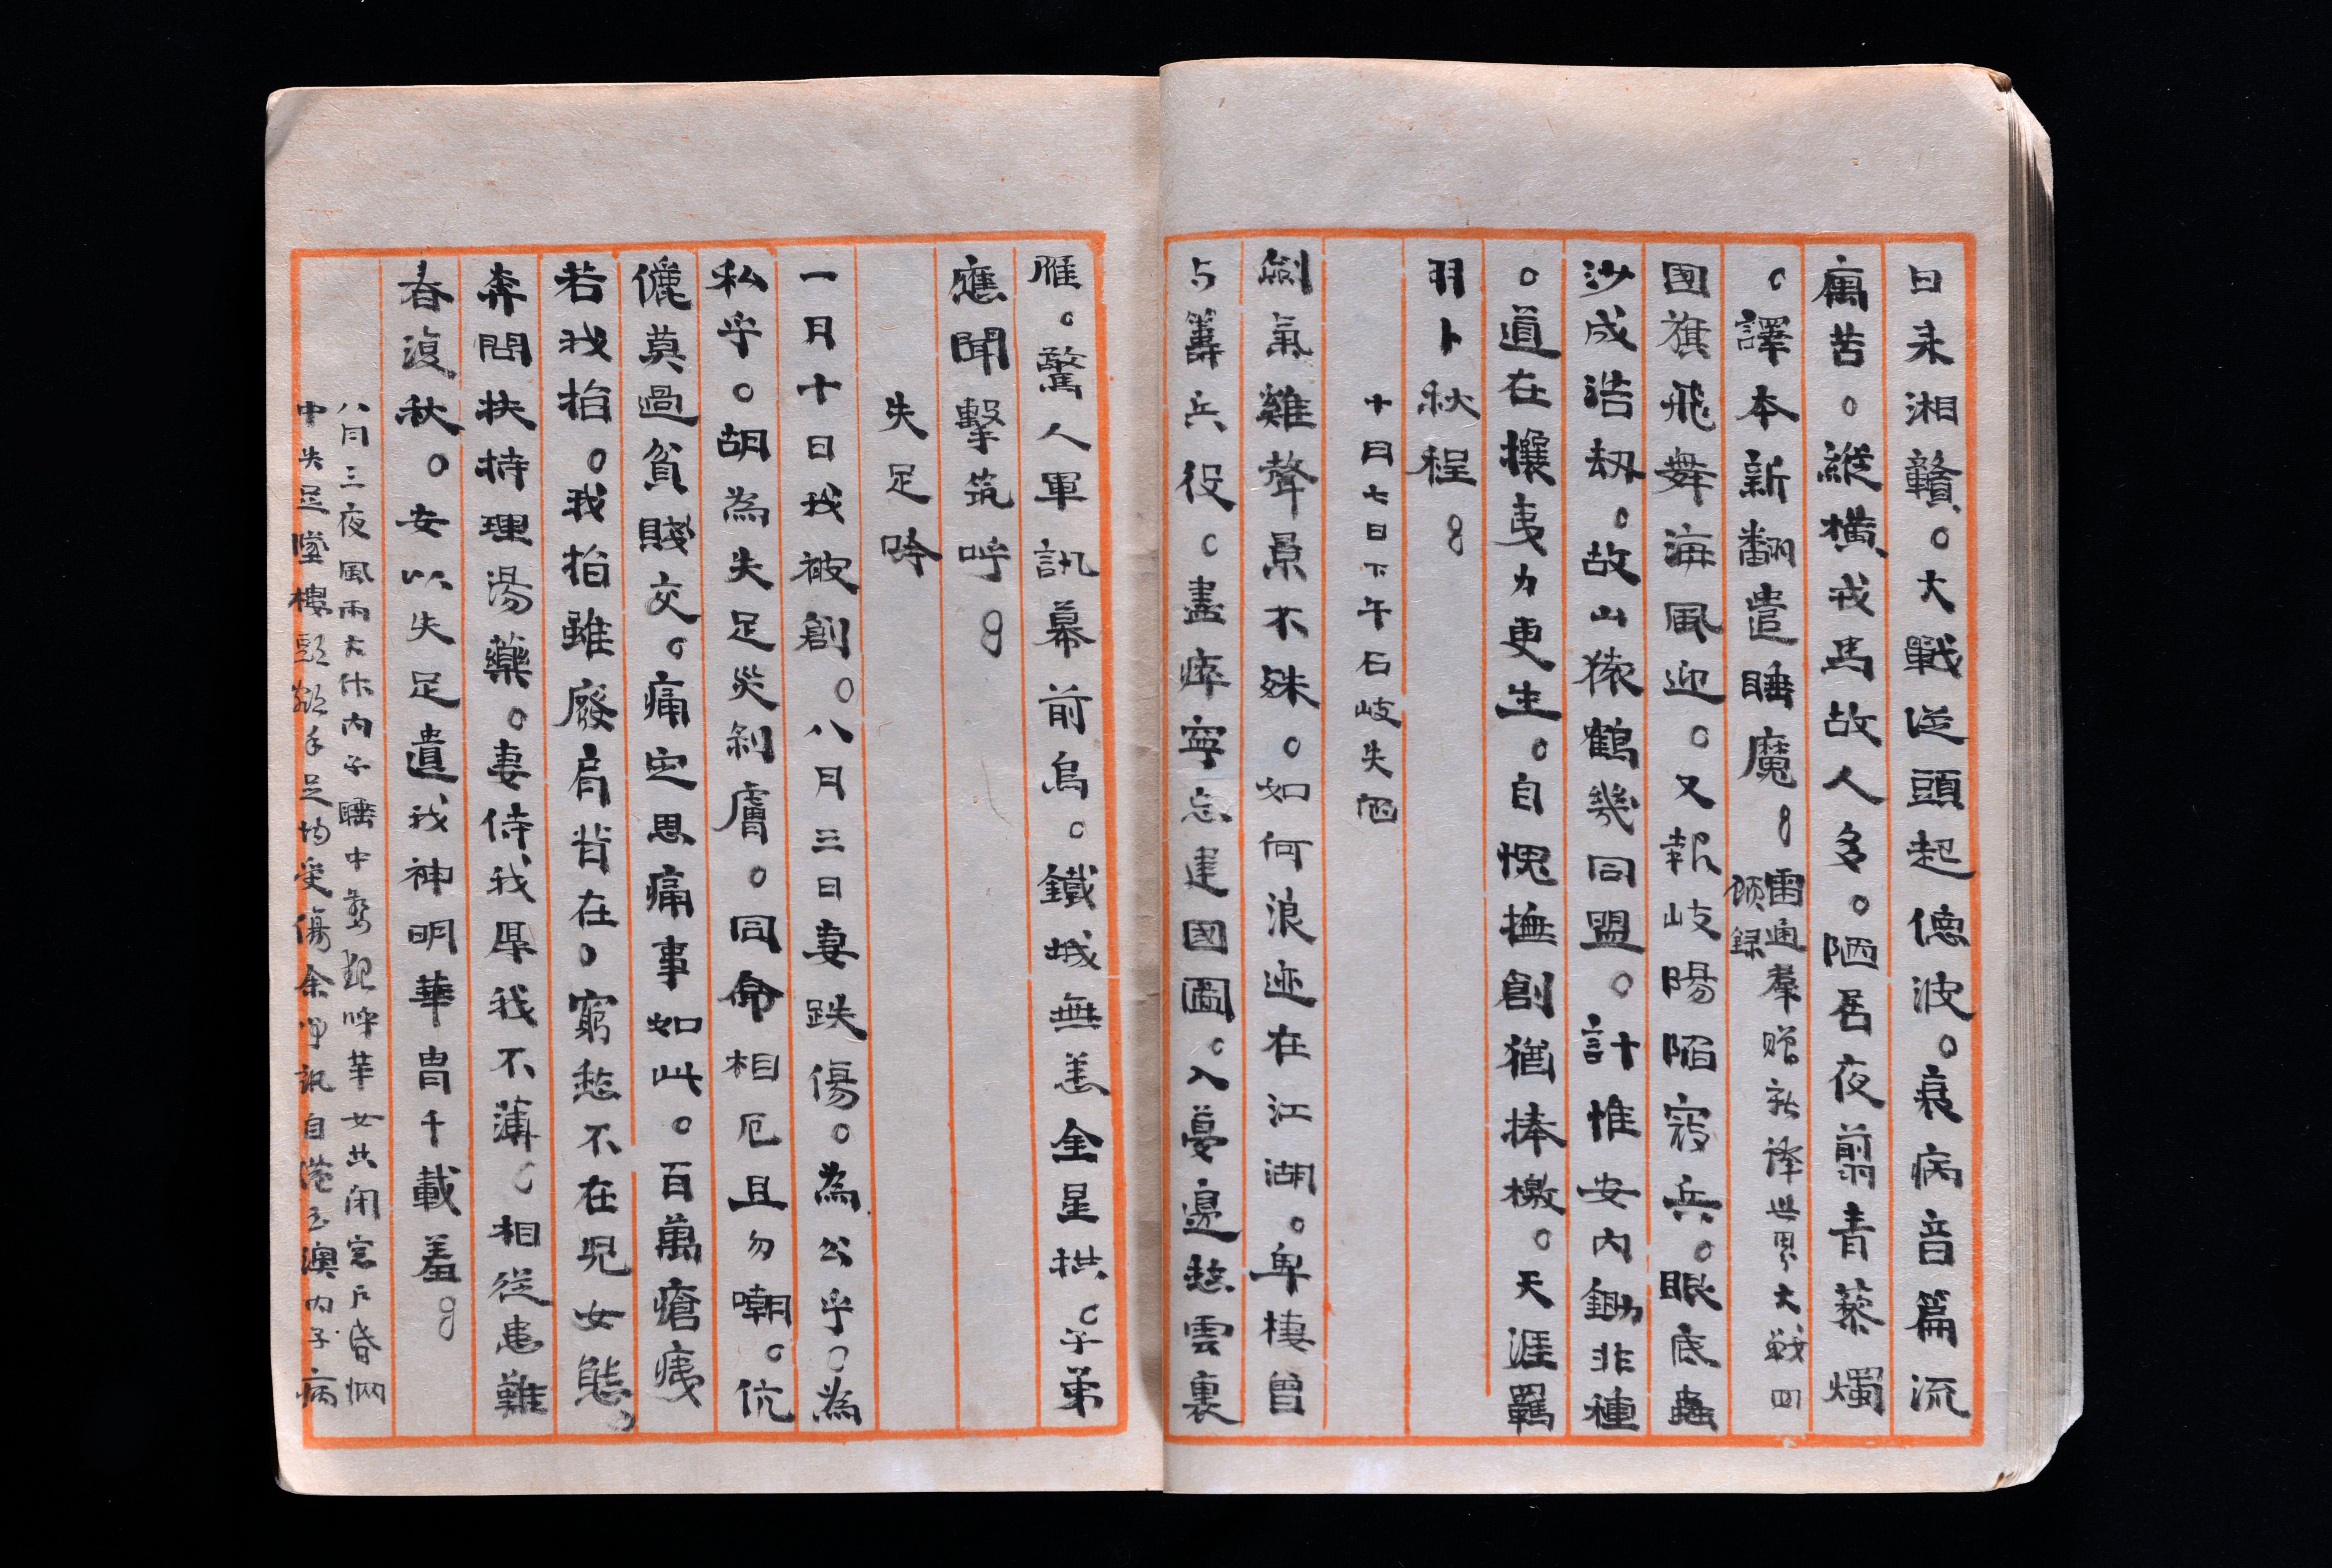 日来湘贛。大戰從頭起德波。哀病音篇流
寓苦。縱横戎馬故人多。陋居夜翦青藜燭
。譯本新翻遣睡魔。雷通羣贈新译世界大戦回
顾録
國旗飛舞海風迎。又報岐陽陷寇兵。眼底蟲
沙成浩劫。故山猿鶴幾同盟。計惟安内鋤非種
。道在攘夷力更生。自愧撫創猶捧檄。天涯羈
羽卜秋程。
十日七日下午石岐失陷
劍氣雞聲景不殊。如何浪迹在江湖。卑棲曾
与籌兵役。盡瘁寧忘建國圖。入夢邊愁雲裏
雁。驚人軍訊幕前烏。鐵城無恙全星拱。子弟
應聞擊筑呼。
失足吟
一月十日我被創。八月三日妻跌傷。為公乎。為
私乎。胡為失足災剝膚。同命相厄且勿嘲。伉
儷莫過貧賤交。痛定思痛事如此。百萬瘡痍
若我拍。我拍雖廢肩背在。窮愁不在兒女態。
奔問扶持理湯藥。妻侍我厚我不薄。相從患難
春復秋。女以失足遺我神明華胄千載羞。
八月三夜風雨大作内子睡中驚起呼華女共闭窓户昏惘
中失足墜樓頭額手足均受傷余得訊自港至澳内子病